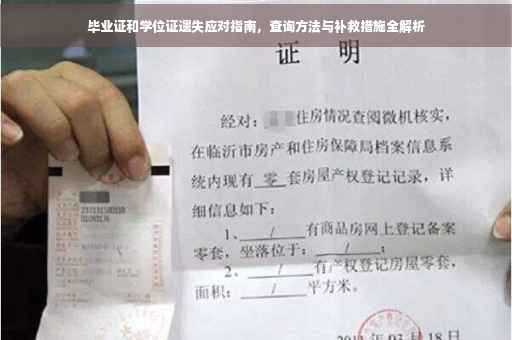 毕业证和学位证遗失应对指南，查询方法与补救措施全解析
证 明
经对：住房情况查阅微机核实，
在临沂市房产和住房保障局档案信息系
统内现有 零 套房屋产权登记记录，详
细信息如下：
1、 / 有商品房网上登记备案
零套，坐落位于： / ；
2、 / 有产权登记房屋零套，
面积： / 平方米。
月 18 日